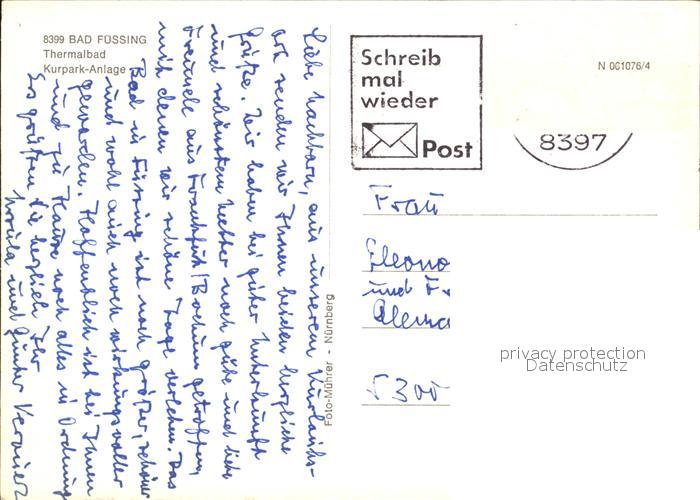 8399 BAD FÜSSING
Thermalbad
Kurpark-Anlage
Liebe Nachbarn, aus unserem Kurlaubs-
ort senden wir Ihnen beiden herzliche
Grüße. Wir haben bei guter Unterkunft
und schönstem Wetter noch gute und liebe
Freunde aus Frankfurt/Bochum getroffen,
mit denen wir schöne Tage verleben. Das
Bad in Füssing ist noch größer, schöner
und wohl auch noch wirkungsvoller
geworden. Hoffentlich ist bei Ihnen
und zu Hause noch alles in Ordnung
Es grüßen Sie herzlich Ihr
und Günter
Foto-Mührer - Nürnberg
Schreib
mal
wieder
Post
N 061076/4
8397
Frau
Eleono
und Fr
5300
privacy protection
Datenschutz